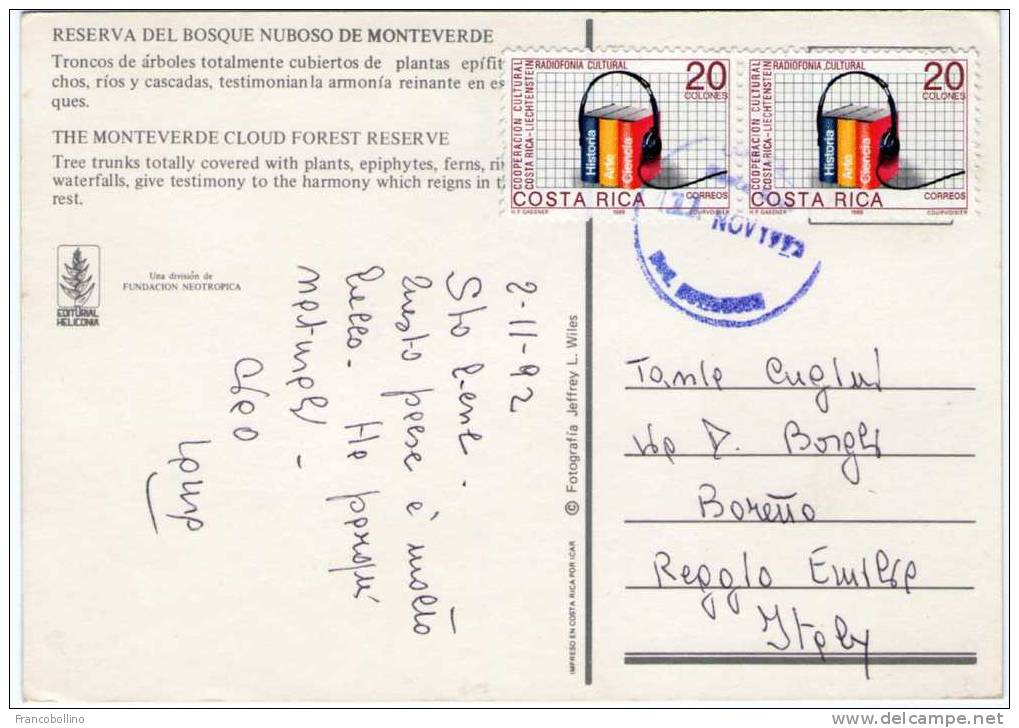 RESERVA DEL BOSQUE NUBOSO DE MONTEVERDE
Troncos de árboles totalmente cubiertos de plantas epífit
chos, ríos y cascadas, testimonian la armonía reinante en es
ques.
THE MONTEVERDE CLOUD FOREST RESERVE
Tree trunks totally covered with plants, epiphytes, ferns, ri
waterfalls, give testimony to the harmony which reigns in t
rest.
COOPERACION CULTURAL
COSTA RICA-LIECHTENSTEIN
RADIOFONIA CULTURAL
20
COLONES
Historia
Arte
Ciencia
CORREOS
COSTA RICA
H.P. GASSNER 1988 COURVOISIER
COOPERACION CULTURAL
COSTA RICA-LIECHTENSTEIN
RADIOFONIA CULTURAL
20
COLONES
Historia
Arte
Ciencia
CORREOS
COSTA RICA
H.P. GASSNER 1988 COURVOISIER
NOV 1992
EDITORIAL
HELICONIA
Una división de
FUNDACION NEOTROPICA
2-11-92
Sto bene.
Questo paese è molto
bello. Ho
naturali
Ciao
© Fotografía Jeffrey L. Wiles
IMPRESO EN COSTA RICA POR ICAR
Borghi
Boretto
Reggio Emilia
Italy
Francobollino
www.delcampe.net